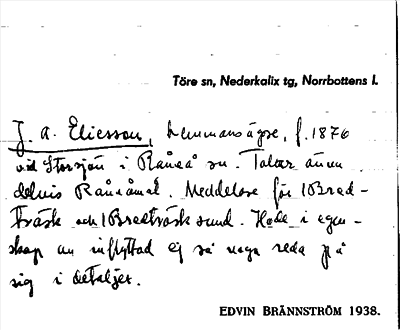 Töre sn, Nederkalix tg, Norrbottens l.
J. A. Ericsson, hemmansägare, f. 1876
vid Storsjön i Råneå sn. Talar ännu
delvis Rånåmål. Meddelare för Bred-
träsk och Bredträsksund. Hade i egen-
skap av inflyttad ej så noga reda på
sig i detaljer.
EDVIN BRÄNNSTRÖM 1938.